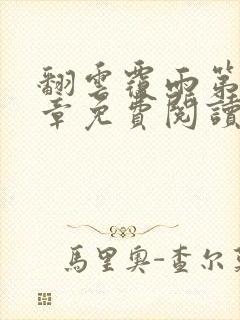 翻雲覆雨第
章免費閱讀
馬里奧-查尔